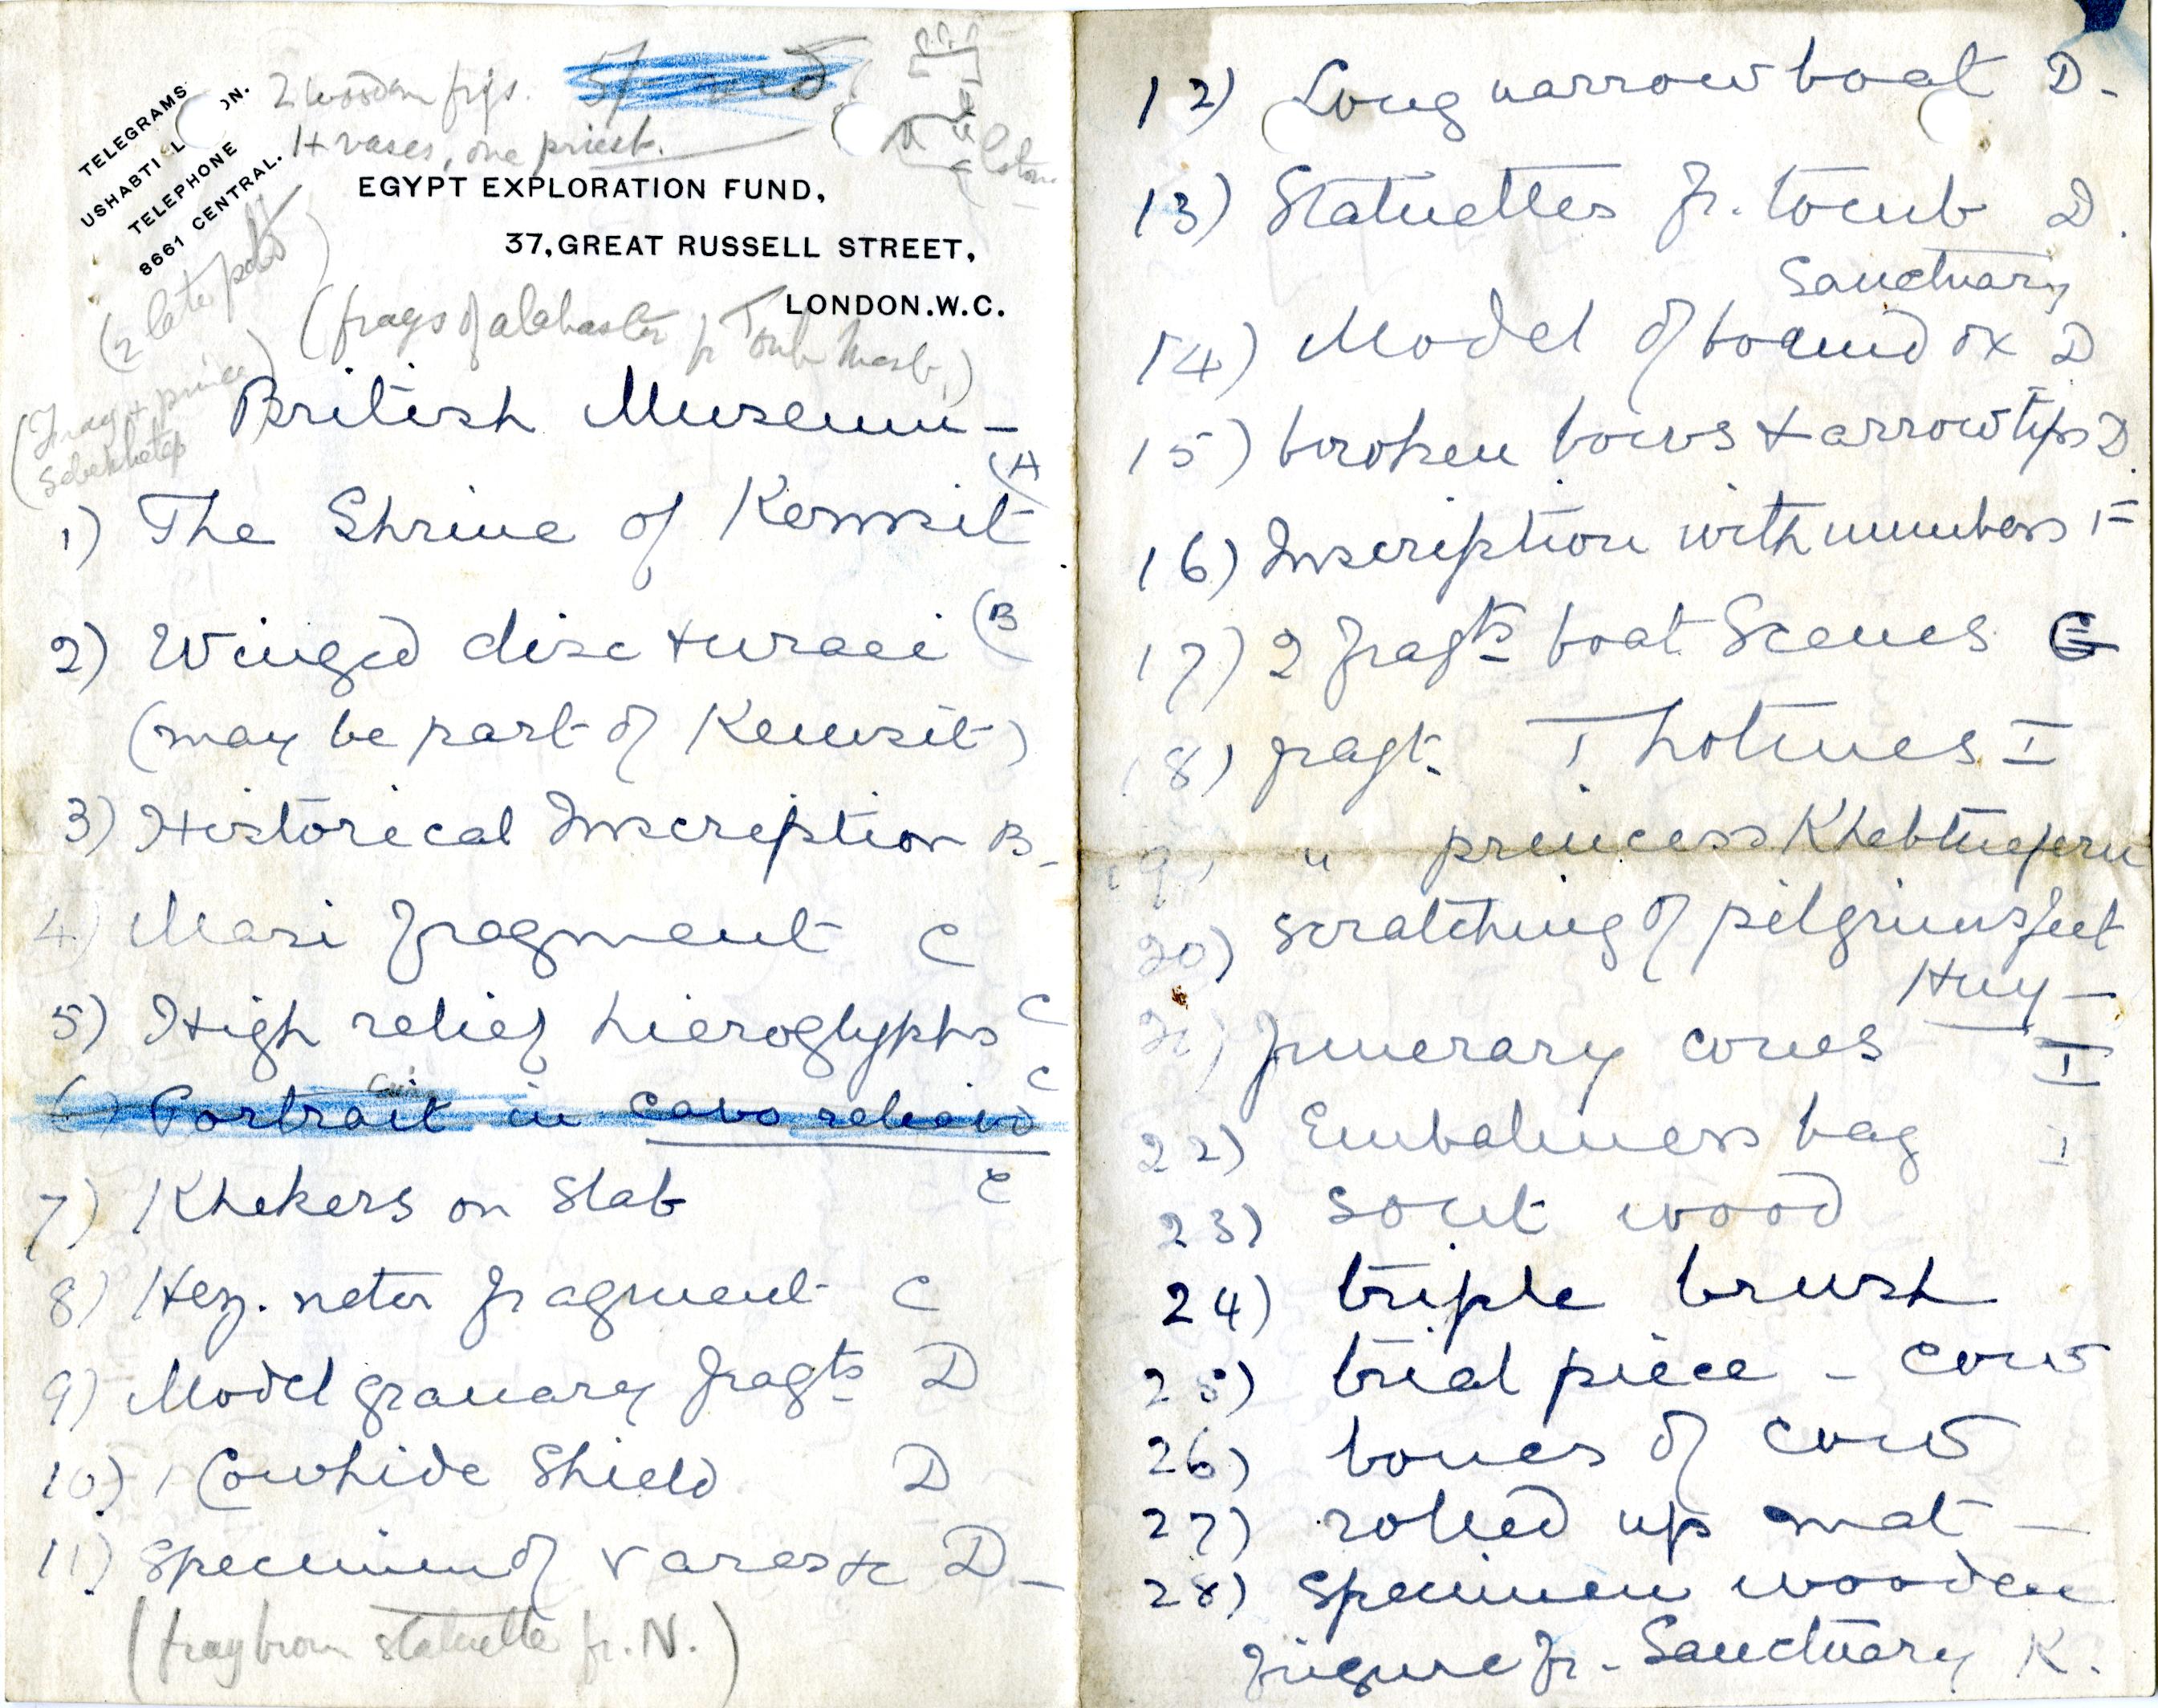 TELEGRAMS
USHABTI
TELEPHONE
8661 CENTRAL.
2 wooden figs.
vases, one priest.
EGYPT EXPLORATION FUND,
37, GREAT RUSSELL STREET,
LONDON. W.C.
(2 late pots)
(frags of alabaster fr Tomb
(Frag + prince
Sebekhetep
British Museum —
1) The Shrine of Kemsit (A
2) Winged disc + uraei (B
(may be part of Kemsit)
3) Historical Inscription B -
4) Mari fragment C
5) High relief hieroglyphs C
6) Portrait in cavo relievo C
7) Khekers on Slab C
8) Hez. neter fragment C
9) Model granary fragts D
10) 1 Cowhide Shield D
11) Specimen of vases &c D —
statuette fr. N.)
12) Long narrow boat D -
13) Statuettes fr. tomb D.
Sanctuary
14) Model of bound ox D
15) broken bows + arrow tips D.
16) Inscription with numbers F
17) 2 fragts boat Scenes
18) fragt. Thotmes I
19) " princess Khebtneferu
20) Scratching of pilgrims feet
Huy —
21) Funerary cones I
22) Embalmers bag I
23) Sont wood
24) triple brush
25) trial piece - cow
26) bones of cow
27) rolled up mat —
28) Specimen wooden
Figure fr. Sanctuary K.